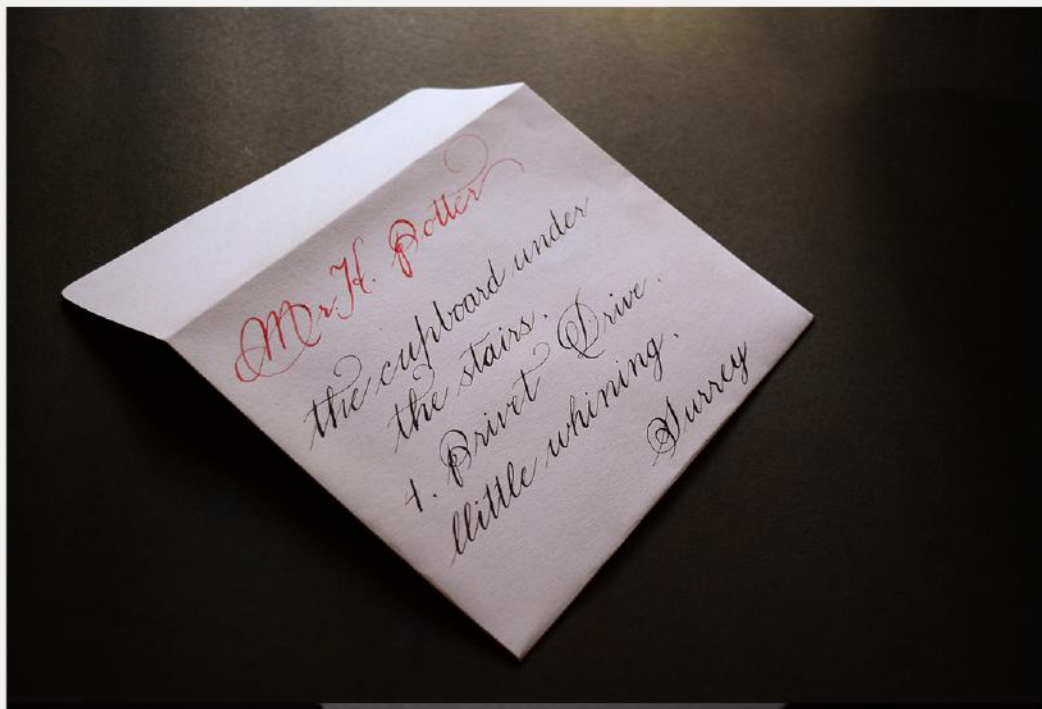 Mr. H. Potter
the cupboard under
the stairs.
4. Privet Drive.
little whining.
Surrey